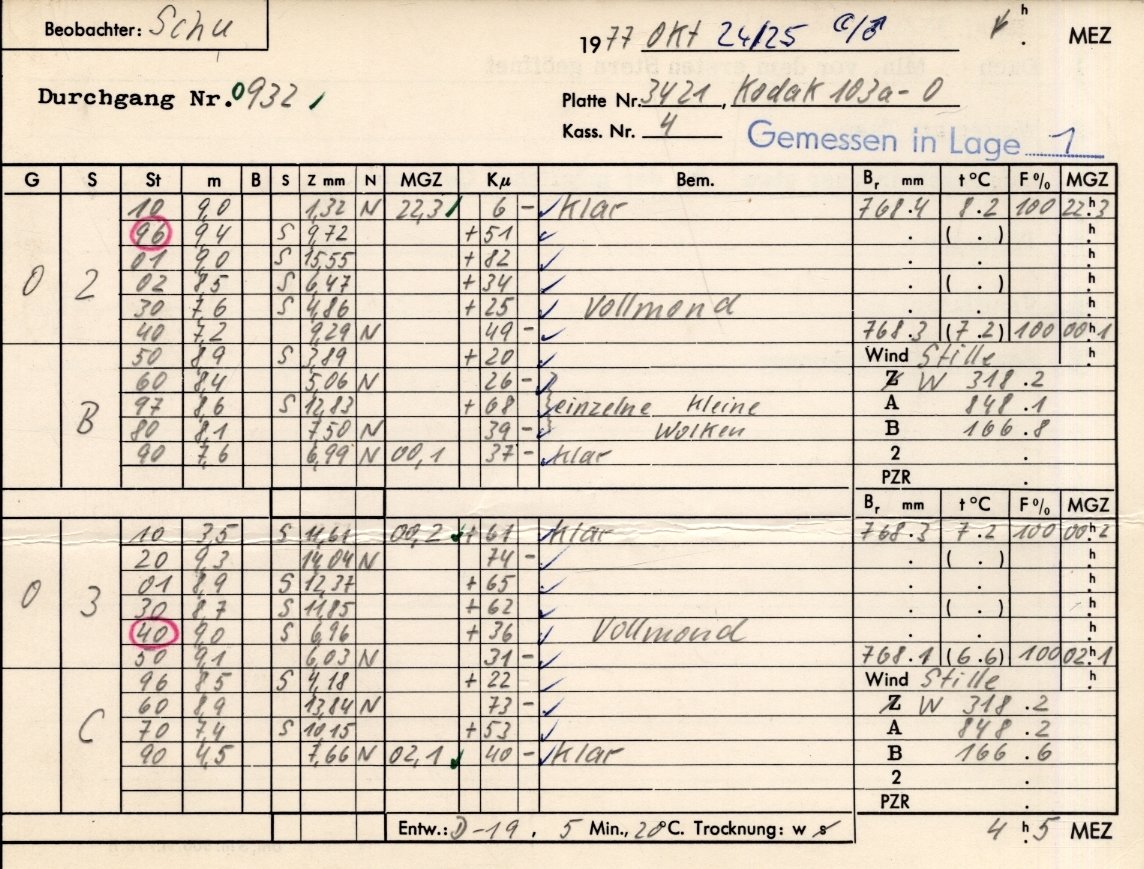 Beobachter: Schu
1977 OKT 24/25 h MEZ
Durchgang Nr. 0932
Platte Nr. 3421, Kodak 103a-O
Kass. Nr. 4
Gemessen in Lage 1
G S St m B S Z mm N MGZ Kµ Bem. Br mm t°C F% MGZ
10 9,0 1,32 N 22,3 6 - klar 768.4 8.2 100 22h3
96 9,4 S 9,72 +51 . ( . ) h
01 9,0 S 15,55 +82 . . h
0 2 02 8,5 S 6,47 +34 . ( . ) h
30 7,6 S 4,86 +25 Vollmond . . h
40 7,2 9,29 N 49 - 768.3 (7.2) 100 00h1
50 8,9 S 3,89 +20 Wind Stille h
60 8,4 5,06 N 26 - Z W 318.2
B 97 8,6 S 12,83 +68 einzelne kleine A 848.1
80 8,1 7,50 N 39 - Wolken B 166.8
90 7,6 6,99 N 00,1 37 - klar 2 .
PZR .
Br mm t°C F% MGZ
10 3,5 S 11,61 00,2 +61 klar 768.3 7.2 100 00h2
20 9,3 14,04 N 74 - . ( . ) h
0 3 01 8,9 S 12,37 +65 . . h
30 8,7 S 11,85 +62 . ( . ) h
40 9,0 S 6,96 +36 Vollmond . . h
50 9,1 6,03 N 31 - 768.1 (6.6) 100 02h1
96 8,5 S 4,18 +22 Wind Stille h
60 8,9 13,84 N 73 - Z W 318.2
C 70 7,4 S 10,15 +53 A 848.2
90 4,5 7,66 N 02,1 40 - klar B 166.6
2 .
PZR .
Entw.: D-19, 5 Min., 20°C. Trocknung: w s 4h5 MEZ